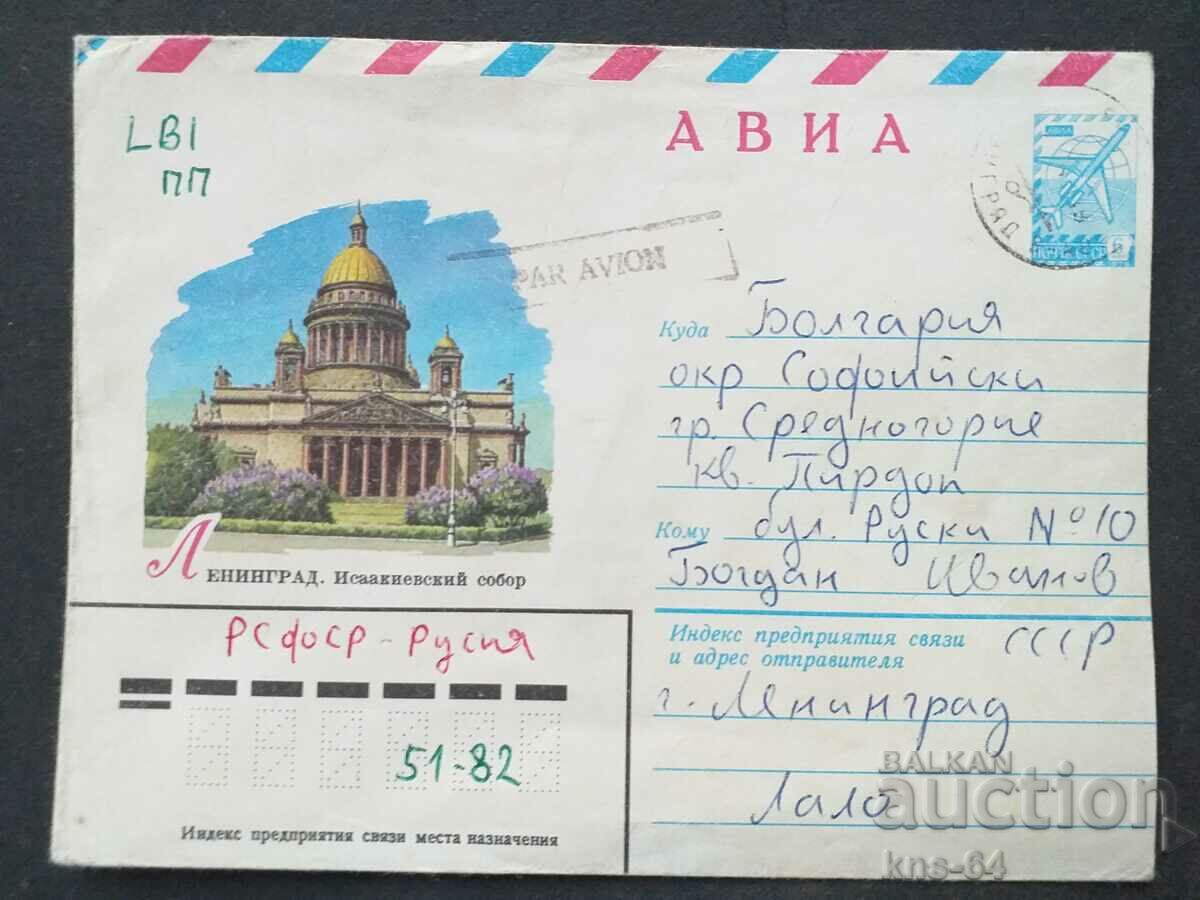 АВИА
LBI
ПП
PAR AVION
АВИА
ПОЧТА СССР 6
Куда Болгария
окр Софийски
гр. Средногорие
кв. Пирдоп
Кому бул. Руски № 10
Богдан Иванов
Ленинград. Исаакиевский собор
РСФСР - Русия
51-82
Индекс предприятия связи места назначения
Индекс предприятия связи
и адрес отправителя
СССР
г. Ленинград
Лало
BALKAN
auction
kns-64